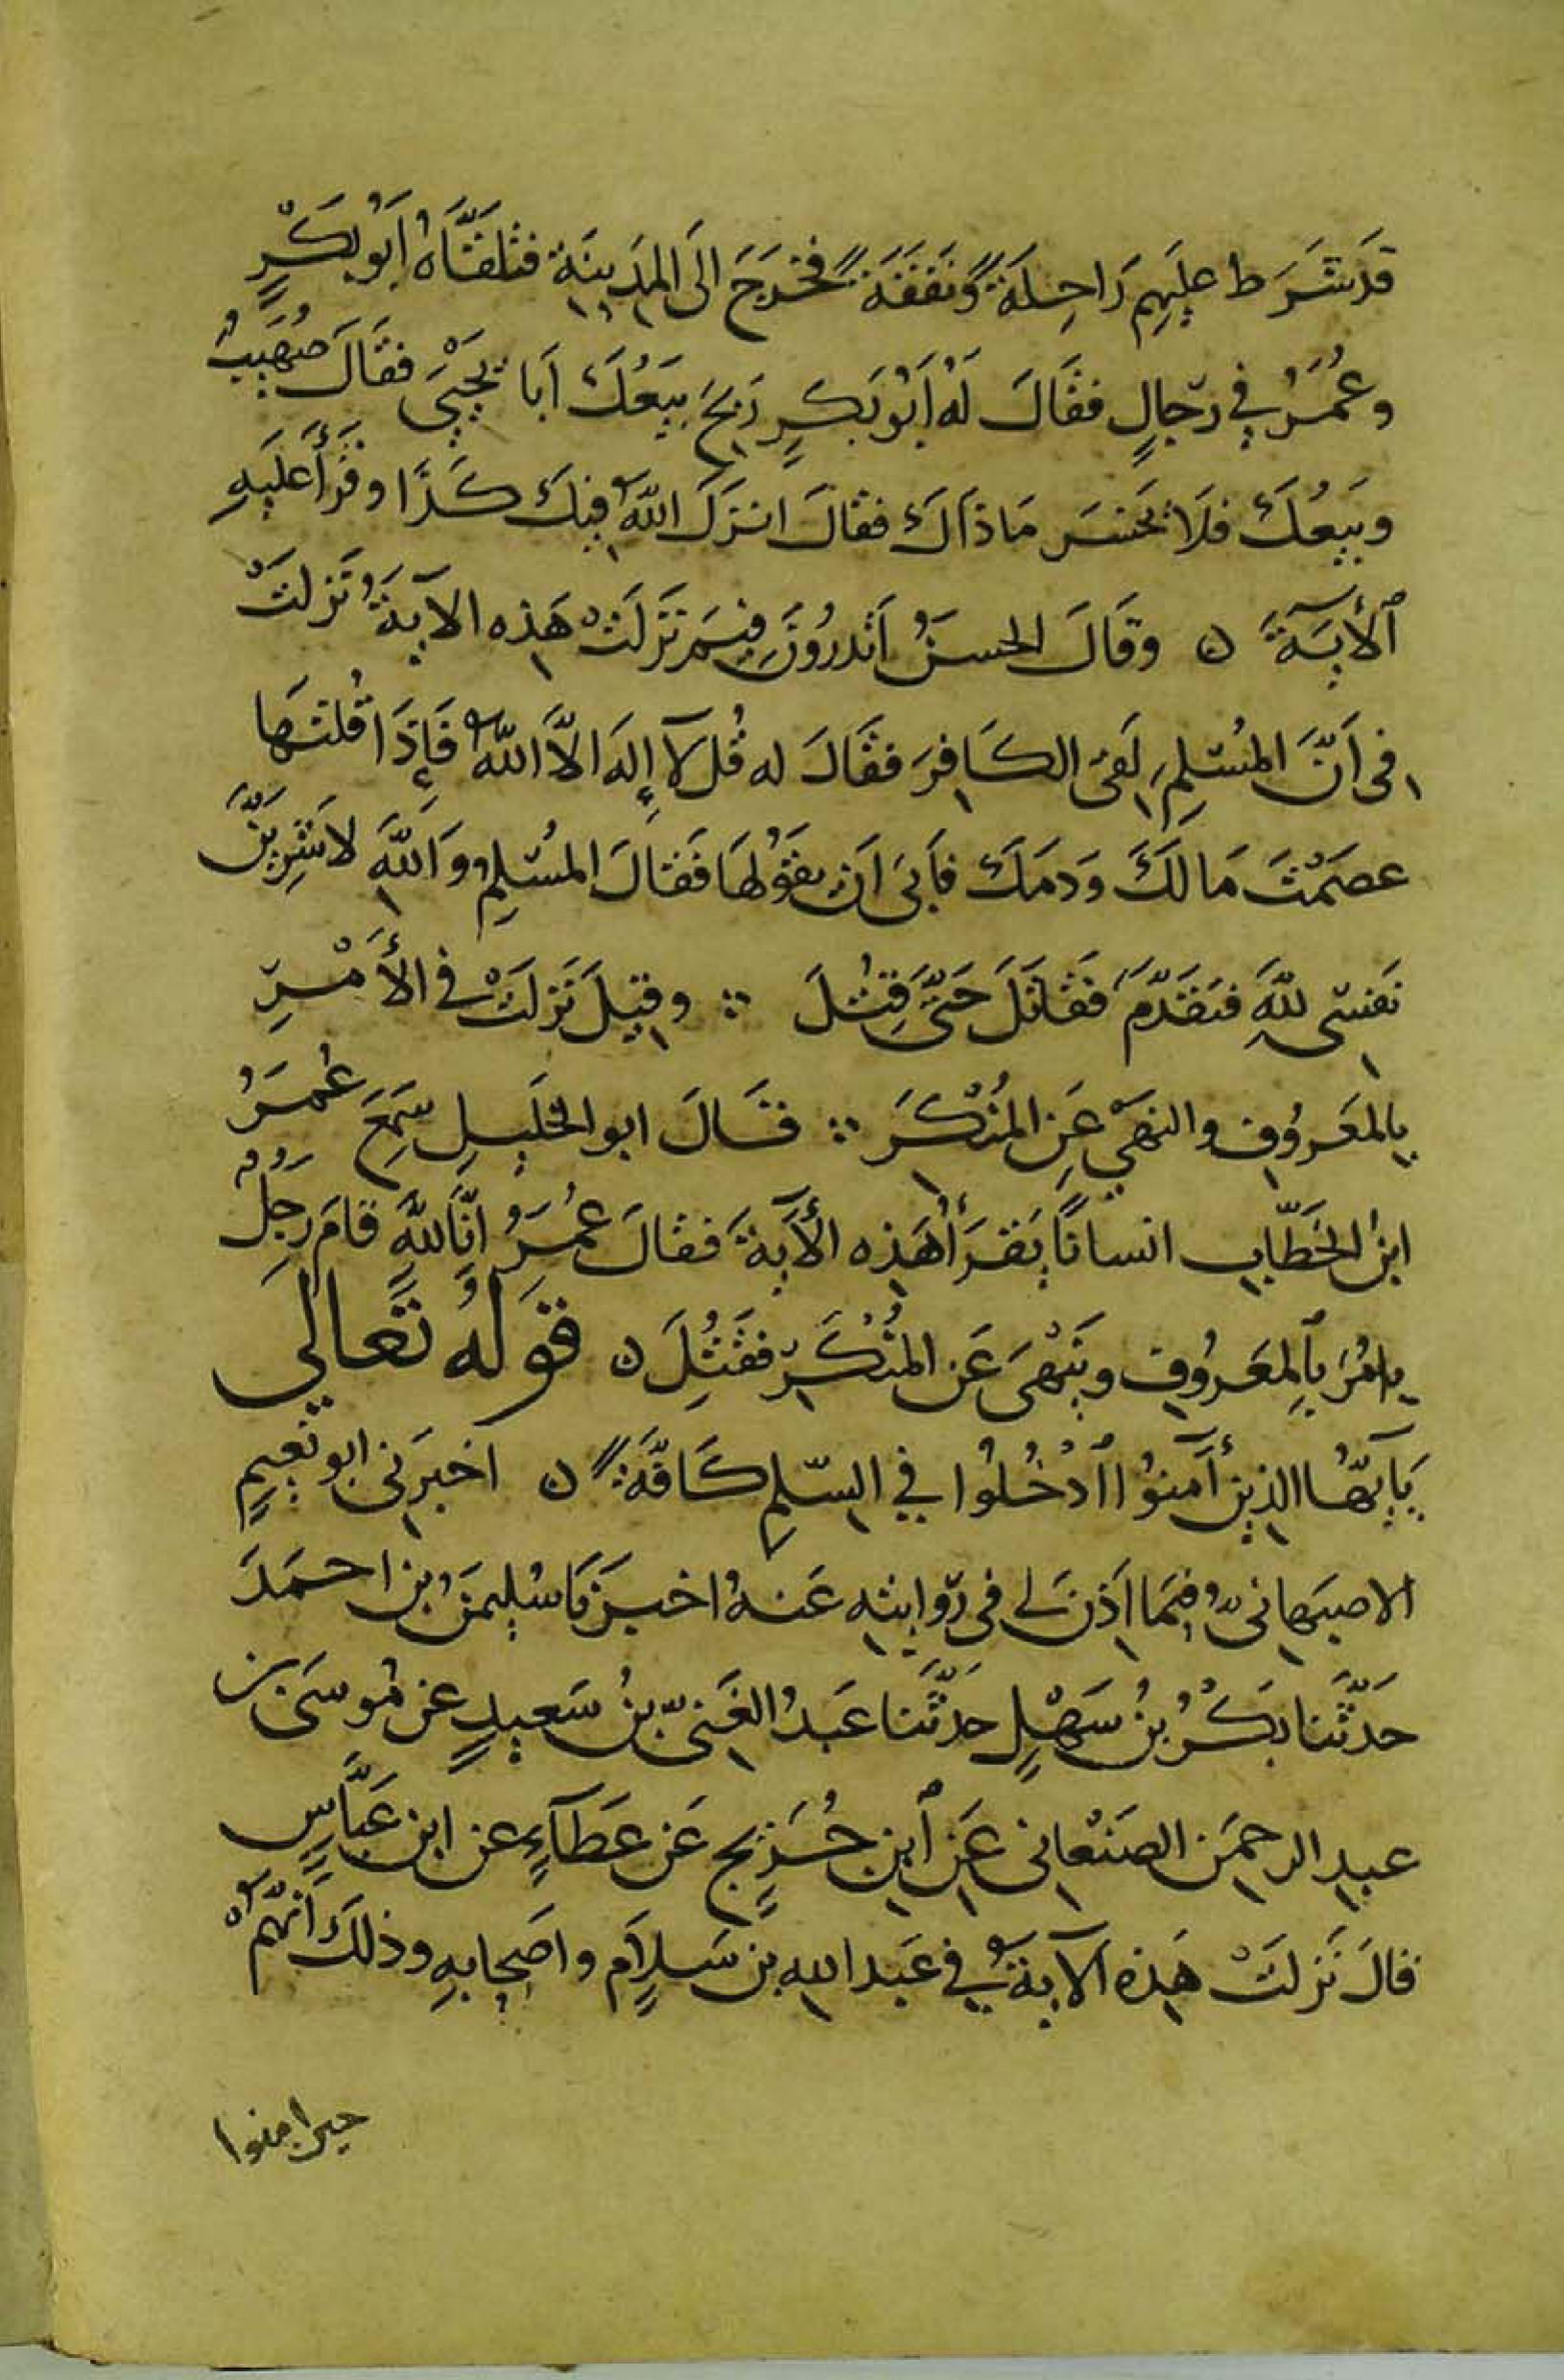 قَد شَرَط عليهِم رَاحِلَةً ونَفَقَةً فخرَجَ الَى المَدِينَةِ فتلقَّاهُ اَبُو بَكْرٍ
وعُمَرُ في رِّجالٍ فقَالَ لَهُ اَبُو بَكرٍ رَبحَ بيَعُكَ اَبَا يَحْيىَ فقَالَ صُهَيبٌ
وبَيعُكَ فلَا يَخسَر مَا ذَاكَ فقالَ انزَلَ اللهُ فيكَ كَذَا وقَرَأَ عَلَيهِ
ٱلأيَةَ ٥ وقَالَ الحسَنُ اَتَدرُونَ فِيمَ نَزَلَتْ هَذِه الآيَةُ نَزلَتْ
فِى اَنَّ المُسْلِمَ لَقى الكَافِرَ فقَالَ له قُل لآ إِلَهَ الاَّ اللهُ فَإِذَا قُلتَها
عصَمْتَ مَالَكَ وَدمَكَ فاَبىَ اَن يقوُلهَا فَقالَ المُسْلِمُ وَاَللهِ لاَشْرِيَنَّ
نَفسِى للهِ فتَقَدَّمَ فَقَاتَلَ حَتىَّ قُتِلَ ∴ وقيلَ نَزلَتْ في الأَمْرِ
بِالمَعرُوفِ والنهَىْ عَنِ المُنْكَرِ ∴ قَالَ ابو الخَليلِ سَمِعَ عُمَرُ
ابنُ الخَطَّابِ انسانًا يَقرَأُ هَذِه الأيَةَ فقالَ عُمَرُ انَّا للهِ قامَ رَجُلٌ
يامُرُ بِٱلمعَرُوفِ ويَنْهىَ عَن المُنْكَرِ فقُتِلَ ٥ قَولُهُ تَعَالىَ
يَآيّهُا الذِينَ أمَنوُا ٱدْخُلُوا في السّلِمِ كَافَّةً ٥ اخبرَنى ابو نُعيمٍ
الاصبَهانىُّ فيمَا اَذِنَ لي فى رّوَايتِه عَنهُ اخبرَنَا سُليمَنُ بن احمَدَ
حَدَّثَنا بَكْرُ بنُ سَهْلٍ حَدَّثَنا عَبدُ الغَنىِّ بنُ سَعيدٍ عن مُوسَى بن
عبدِ الرحمَن الصَنْعانى عَن ٱبنِ جُرَيجٍ عَن عَطَآءٍ عن ابنِ عَبَّاسٍ
قالَ نَزلَتْ هَذِه الآيةُ في عَبد اللهِ بن سَلاَمٍ واصَحابهِ وذلكَ اَنَّهُمْ
حين امنوا